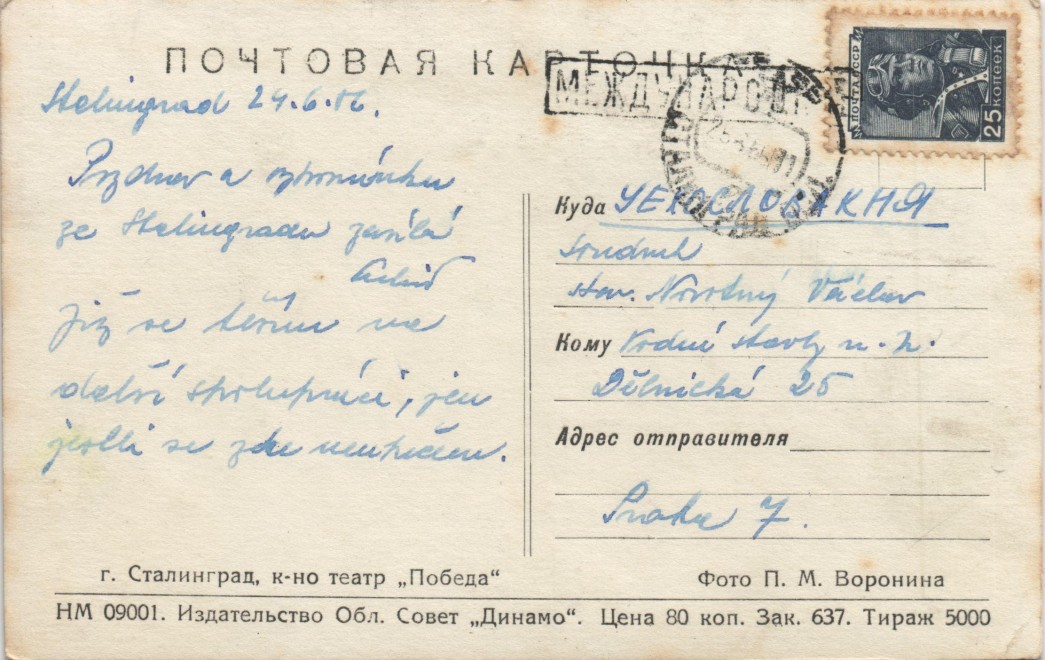 ПОЧТОВАЯ КАРТОЧКА
МЕЖДУНАРОД
ПОЧТА СССР
25 КОПЕЕК
СТАЛИНГРАД
Stalingrad 24.6.56.
Pozdrav a vzpomínku
ze Stalingradu zasílá
Již se těším na
další spolupráci, jen
jestli se zde neuhřeju.
Куда ЧЕХОСЛОВАКИЯ
soudruh
stav. Novotný Václav
Кому Vodní stavby n. p.
Dělnická 25
Адрес отправителя
Praha 7.
г. Сталинград, к-но театр „Победа“
Фото П. М. Воронина
НМ 09001. Издательство Обл. Совет „Динамо“. Цена 80 коп. Зак. 637. Тираж 5000